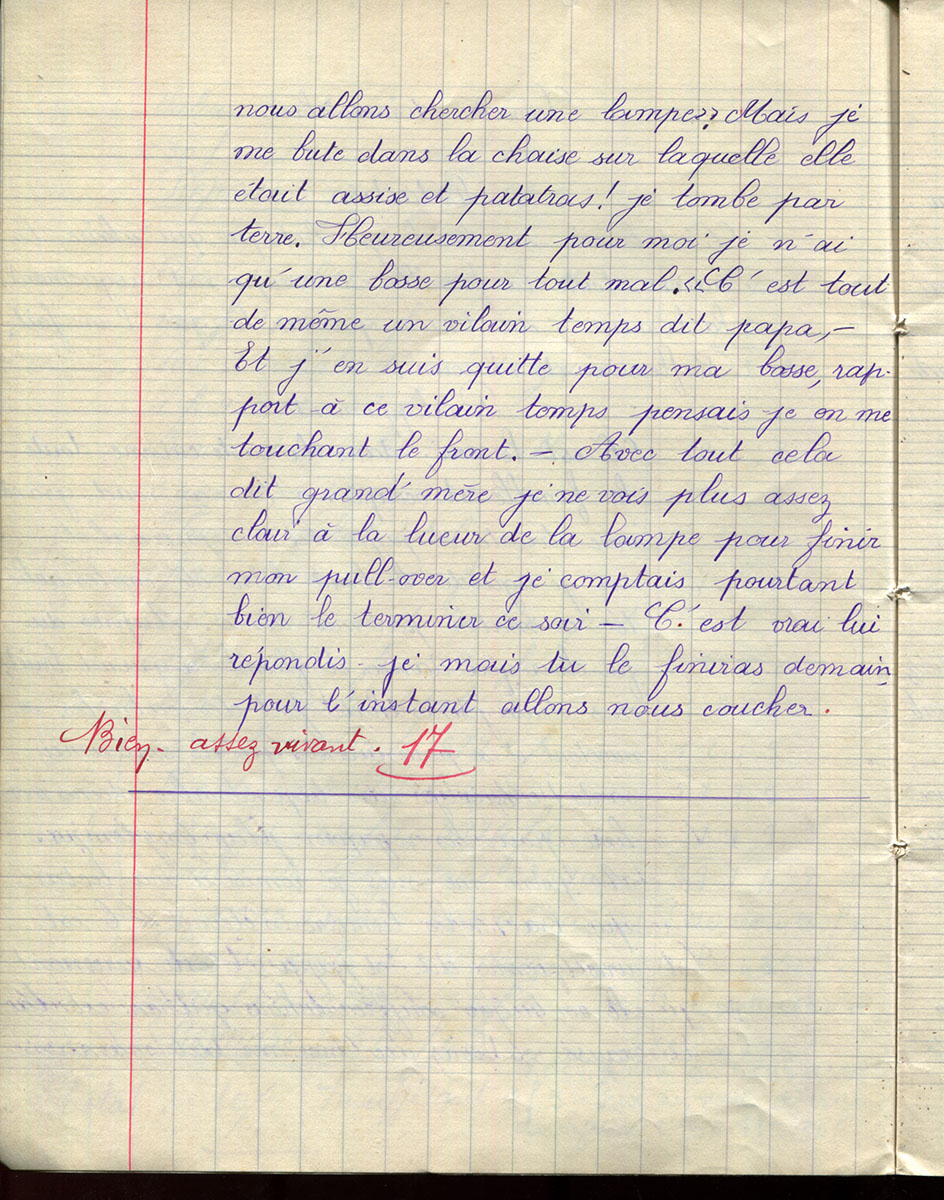 nous allons chercher une lampe»? Mais je
me bute dans la chaise sur laquelle elle
était assise et patatras! je tombe par
terre. Heureusement pour moi je n'ai
qu'une bosse pour tout mal. «C'est tout
de même un vilain temps dit papa, –
Et j'en suis quitte pour ma bosse, rap-
port à ce vilain temps pensais je en me
touchant le front. – Avec tout cela
dit grand'mère je ne vois plus assez
clair à la lueur de la lampe pour finir
mon pull-over et je comptais pourtant
bien le terminer ce soir – C'est vrai lui
répondis-je mais tu le finiras demain,
pour l'instant allons nous coucher.
Bien. assez vivant. 17